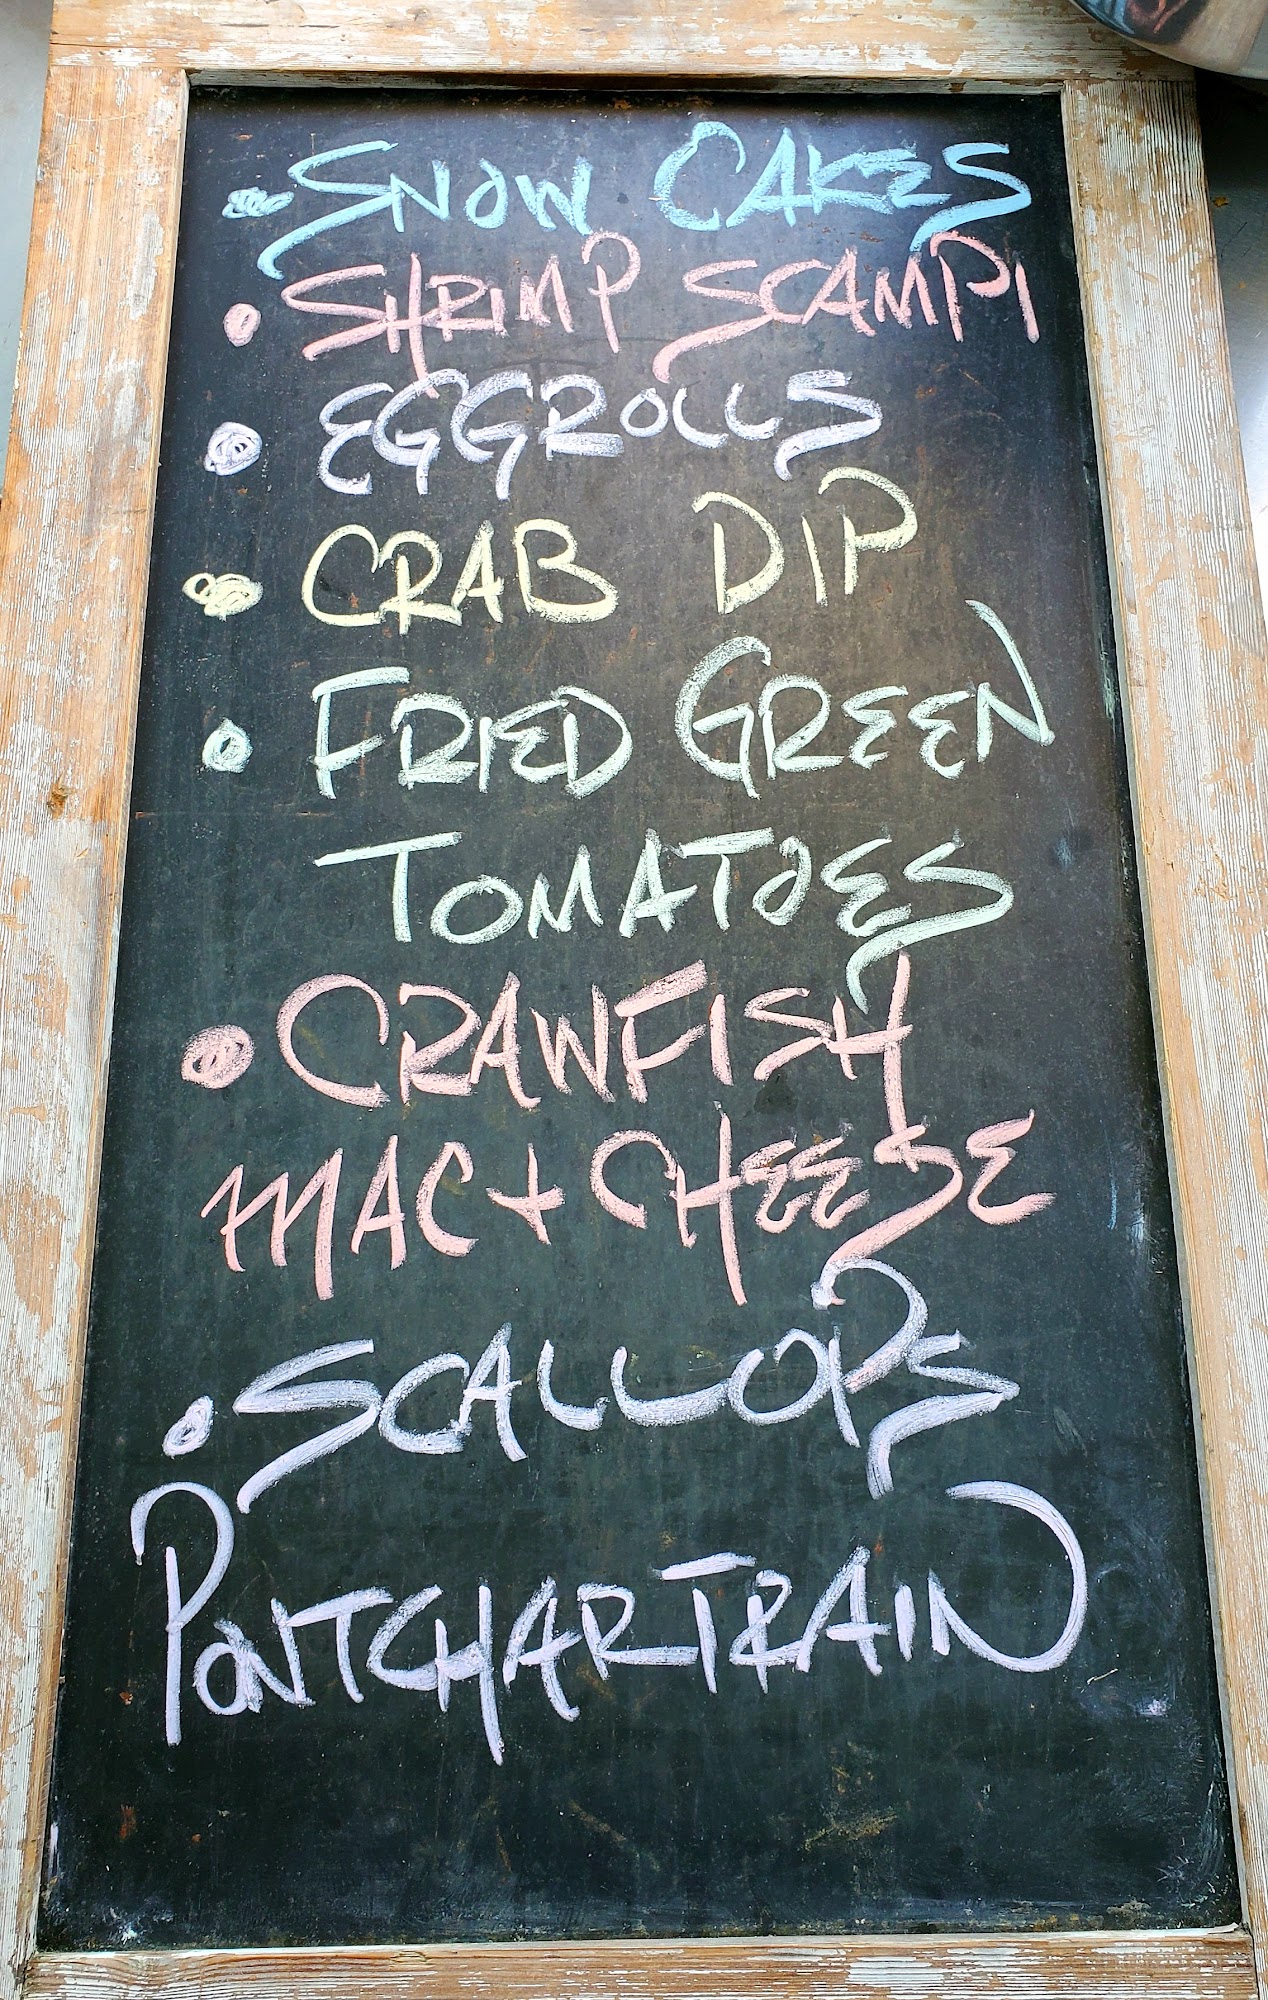 • SNOW CAKES
• SHRIMP SCAMPI
• EGGROLLS
• CRAB DIP
• FRIED GREEN
TOMATOES
• CRAWFISH
MAC + CHEESE
• SCALLOPS
PONTCHARTRAIN